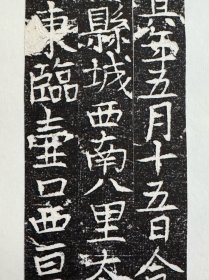 年五月十五日合
縣城西南八里太
東臨壼口西亘